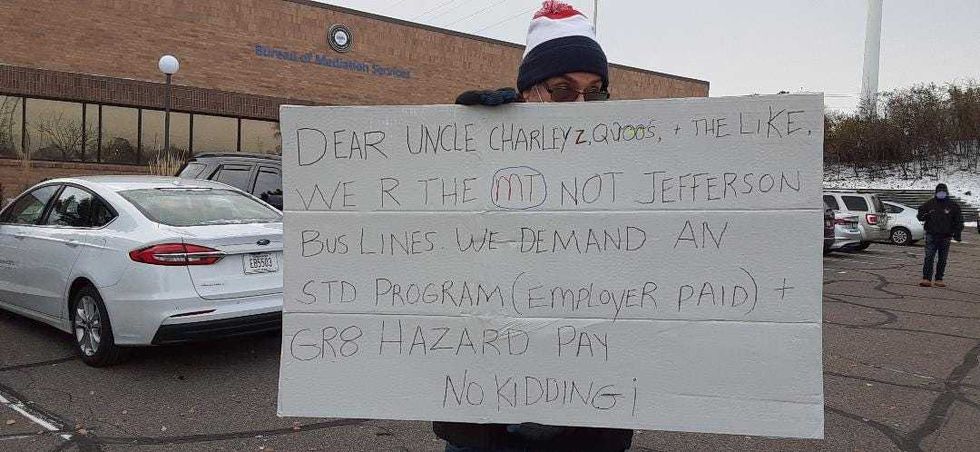 Bureau of Mediation Services
DEAR UNCLE CHARLEY z, QJOOS, + THE LIKE,
WE R THE MT NOT JEFFERSON
BUS LINES. WE DEMAND AN
STD PROGRAM (EMPLOYER PAID) +
GR8 HAZARD PAY
NO KIDDING¡
E85503